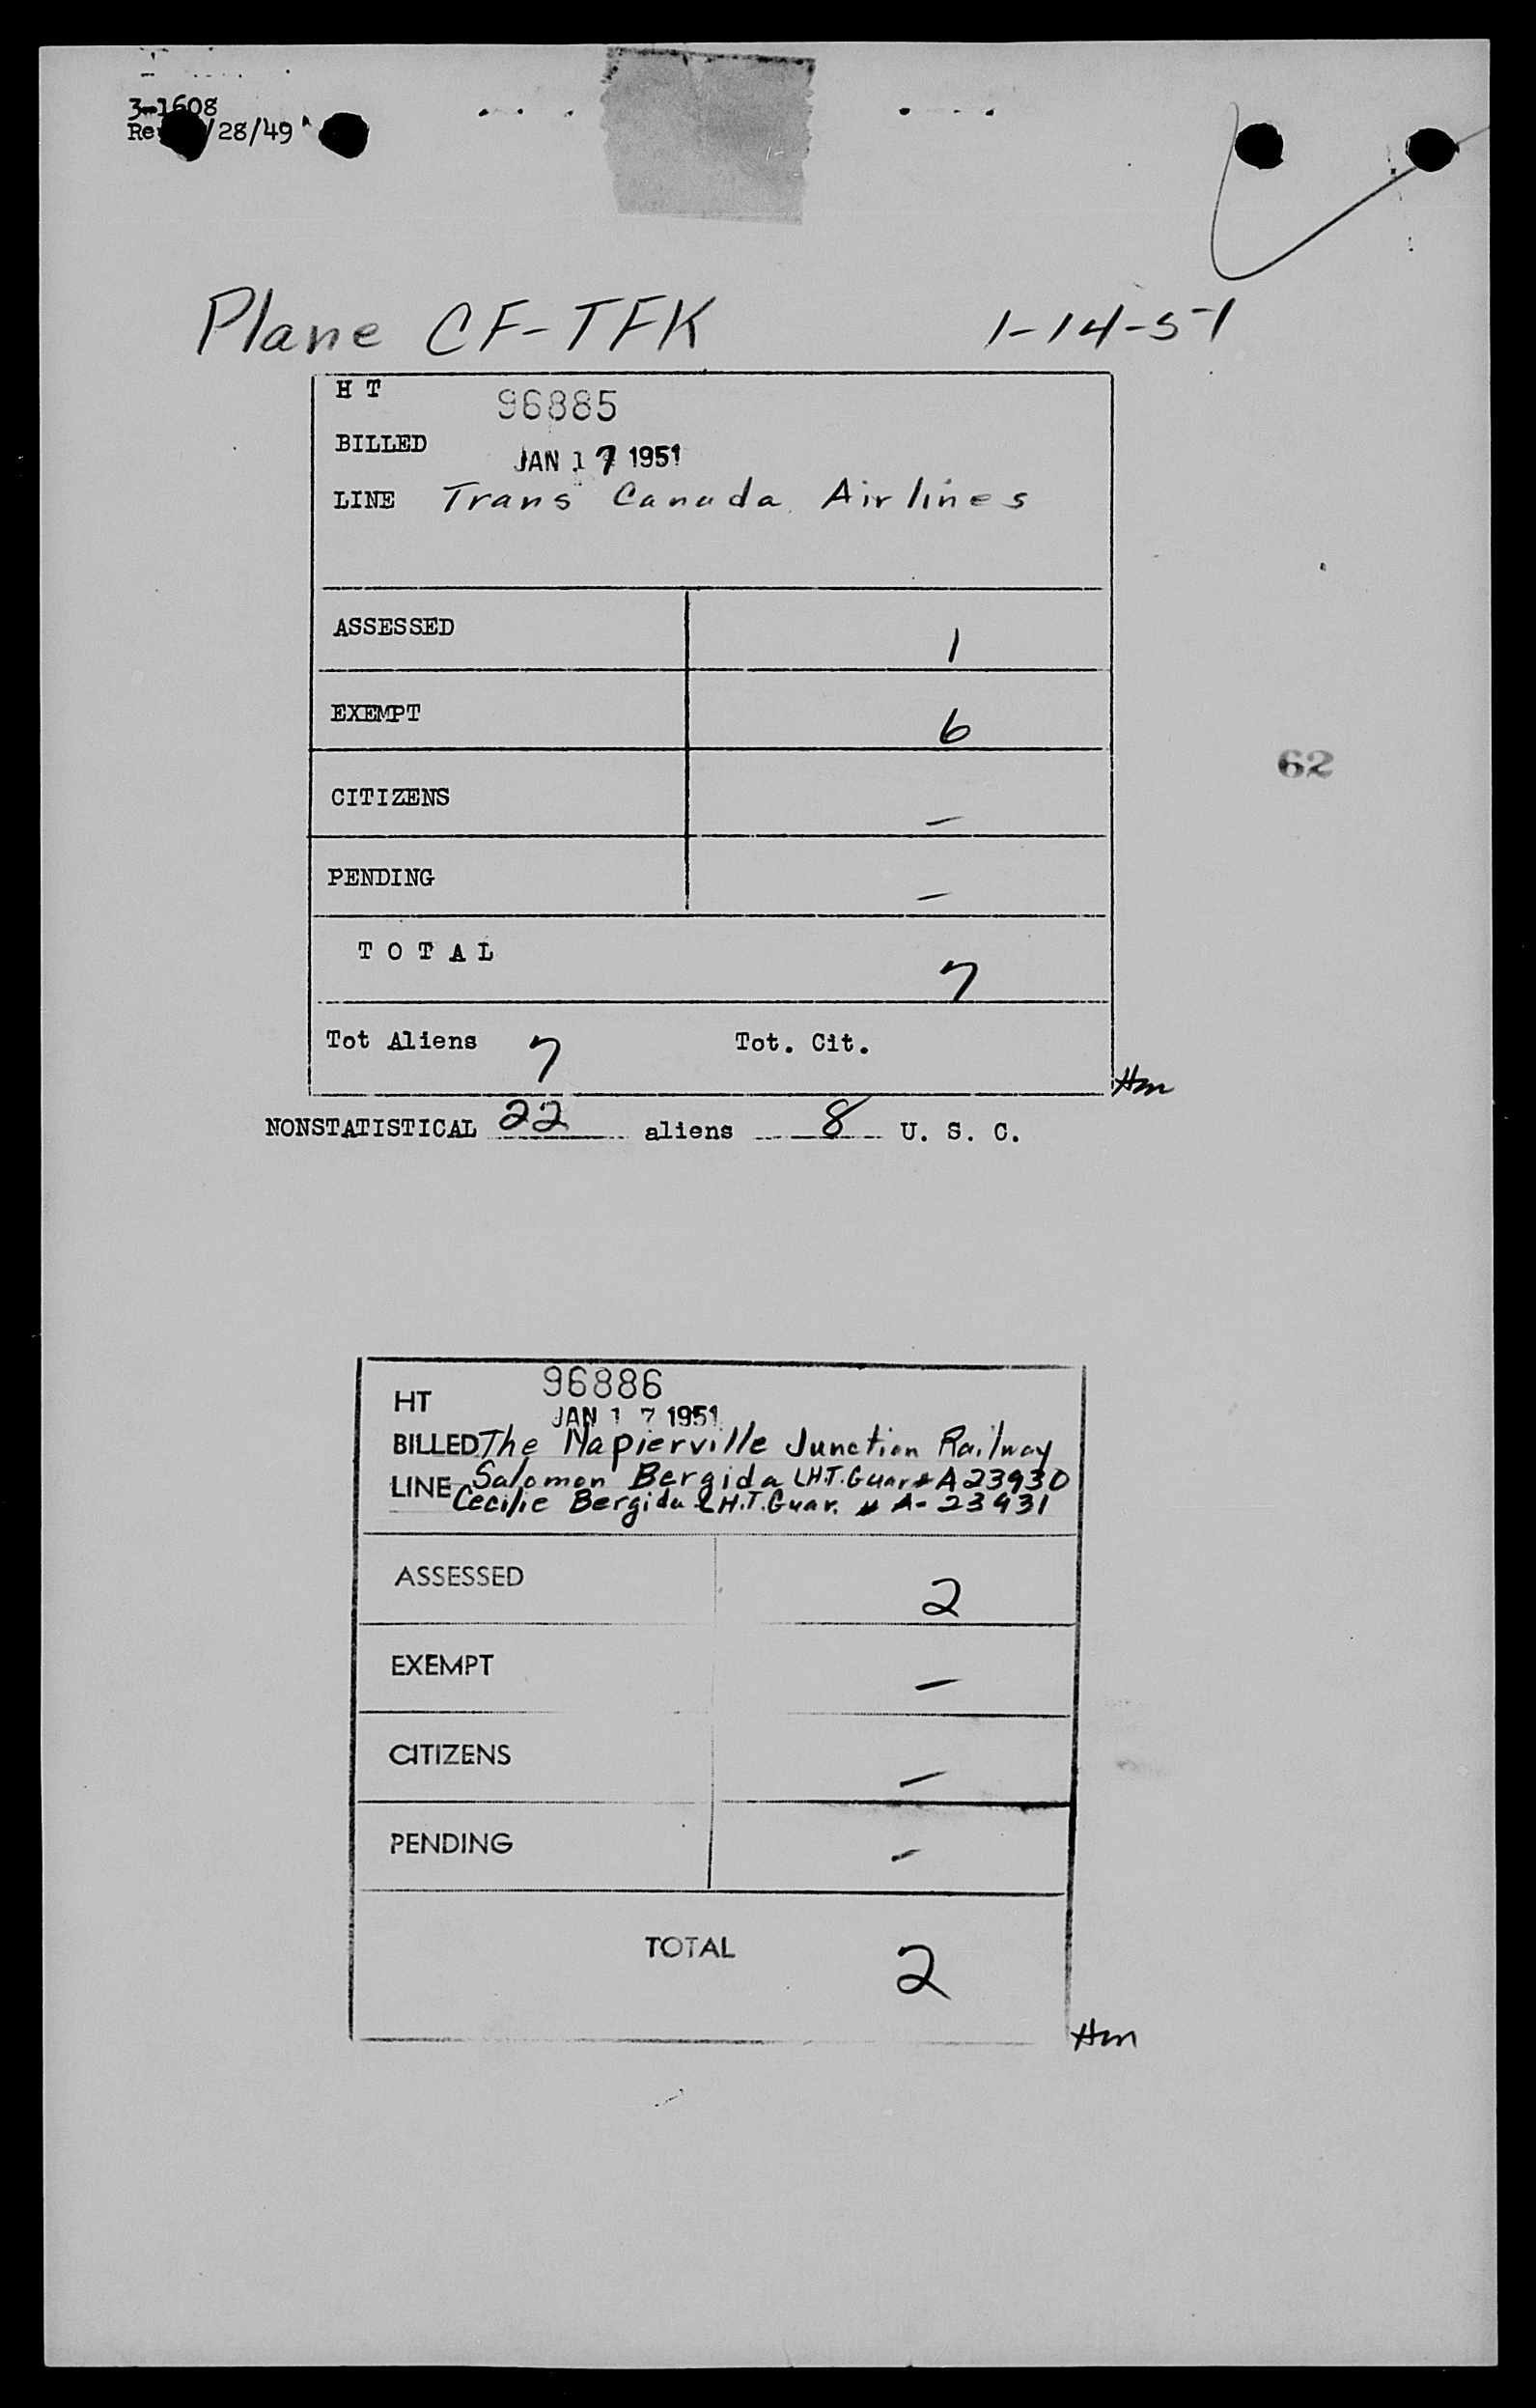 3-1608
Re /28/49
Plane CF-TFK 1-14-51
H T 96885
BILLED JAN 17 1951
LINE Trans Canada Airlines
ASSESSED 1
EXEMPT 6
62
CITIZENS –
PENDING –
T O T A L 7
Tot Aliens 7 Tot. Cit.
Hm
NONSTATISTICAL 22 aliens 8 U. S. C.
HT 96886
JAN 17 1951
BILLED The Napierville Junction Railway
LINE Salomon Bergida LH.T. Guar # A23930
Cecilie Bergida LH.T. Guar. # A-23931
ASSESSED 2
EXEMPT –
CITIZENS –
PENDING –
TOTAL 2
Hm